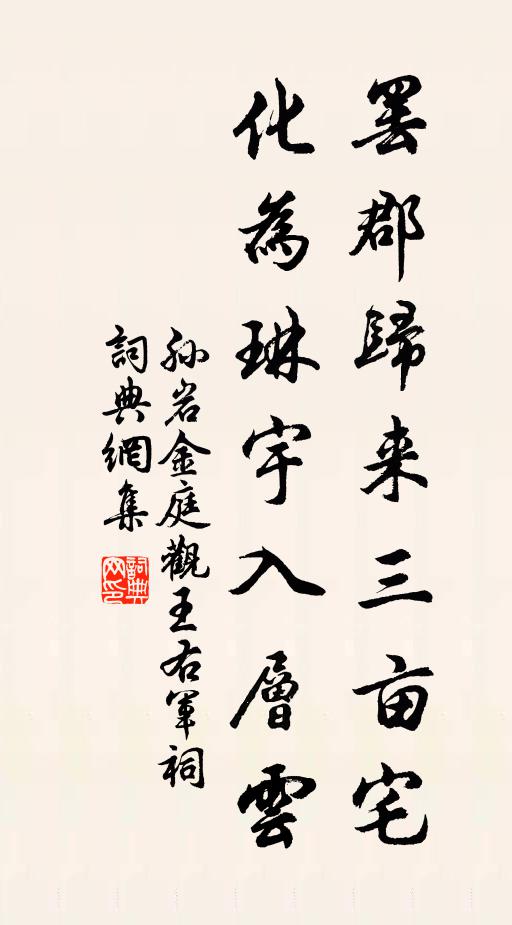 罢郡歸来三亩宅
化為琳宇入層雲
孙岩金庭觀王右軍祠
詞典網集
詞典网印